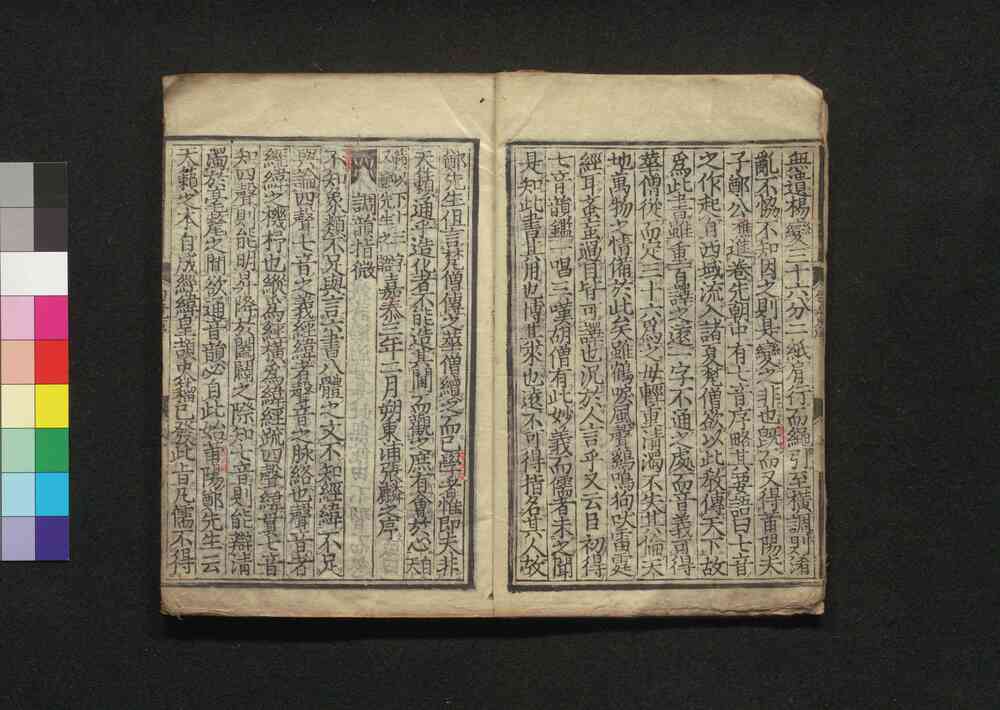 無遺楊變三十六分二紙肩行而繩引至橫調則淆
亂不協不知因之則其變之非也既而又得莆陽夫
子鄭公樵進卷先朝中有七音序略其要語曰七音
之作起自西域流入諸夏梵僧欲以此教傳天下故
爲此書雖重百譯之遠一字不通之處而音義可得
華僧從而定三十六爲之母輕重清濁不失其倫天
地萬物之情備於此矣雖鶴唳風聲鷄鳴狗吠雷霆
經耳蚉䖟過目皆可譯也況於人言乎又云臣初得
七音韻鑑一唱三嘆胡僧有此妙義而儒者未之聞
是知此書其用也博其來也遠不可得指名其人故
鄭先生但言梵僧傳之華僧續之而已學者惟即夫非
天籟通乎造化者不能造其閫而觀之庶有會於心自天
籟以下十三字皆鄭先生之語嘉泰三年二月朔東浦張麟之序
調韻指微
不知象類不足與言六書八體之文不知經緯不足
與論四聲七音之義經緯者聲音之脉絡也聲音者
經緯之機杼也縱爲經橫爲緯經疏四聲緯貫七音
知四聲則能明昇降於闔闢之際知七音則能辯清
濁於毫釐之間欲通音韻必自此始莆陽鄭先生云
天籟之本自成經緯皇頡史籀已發此旨凡儒不得